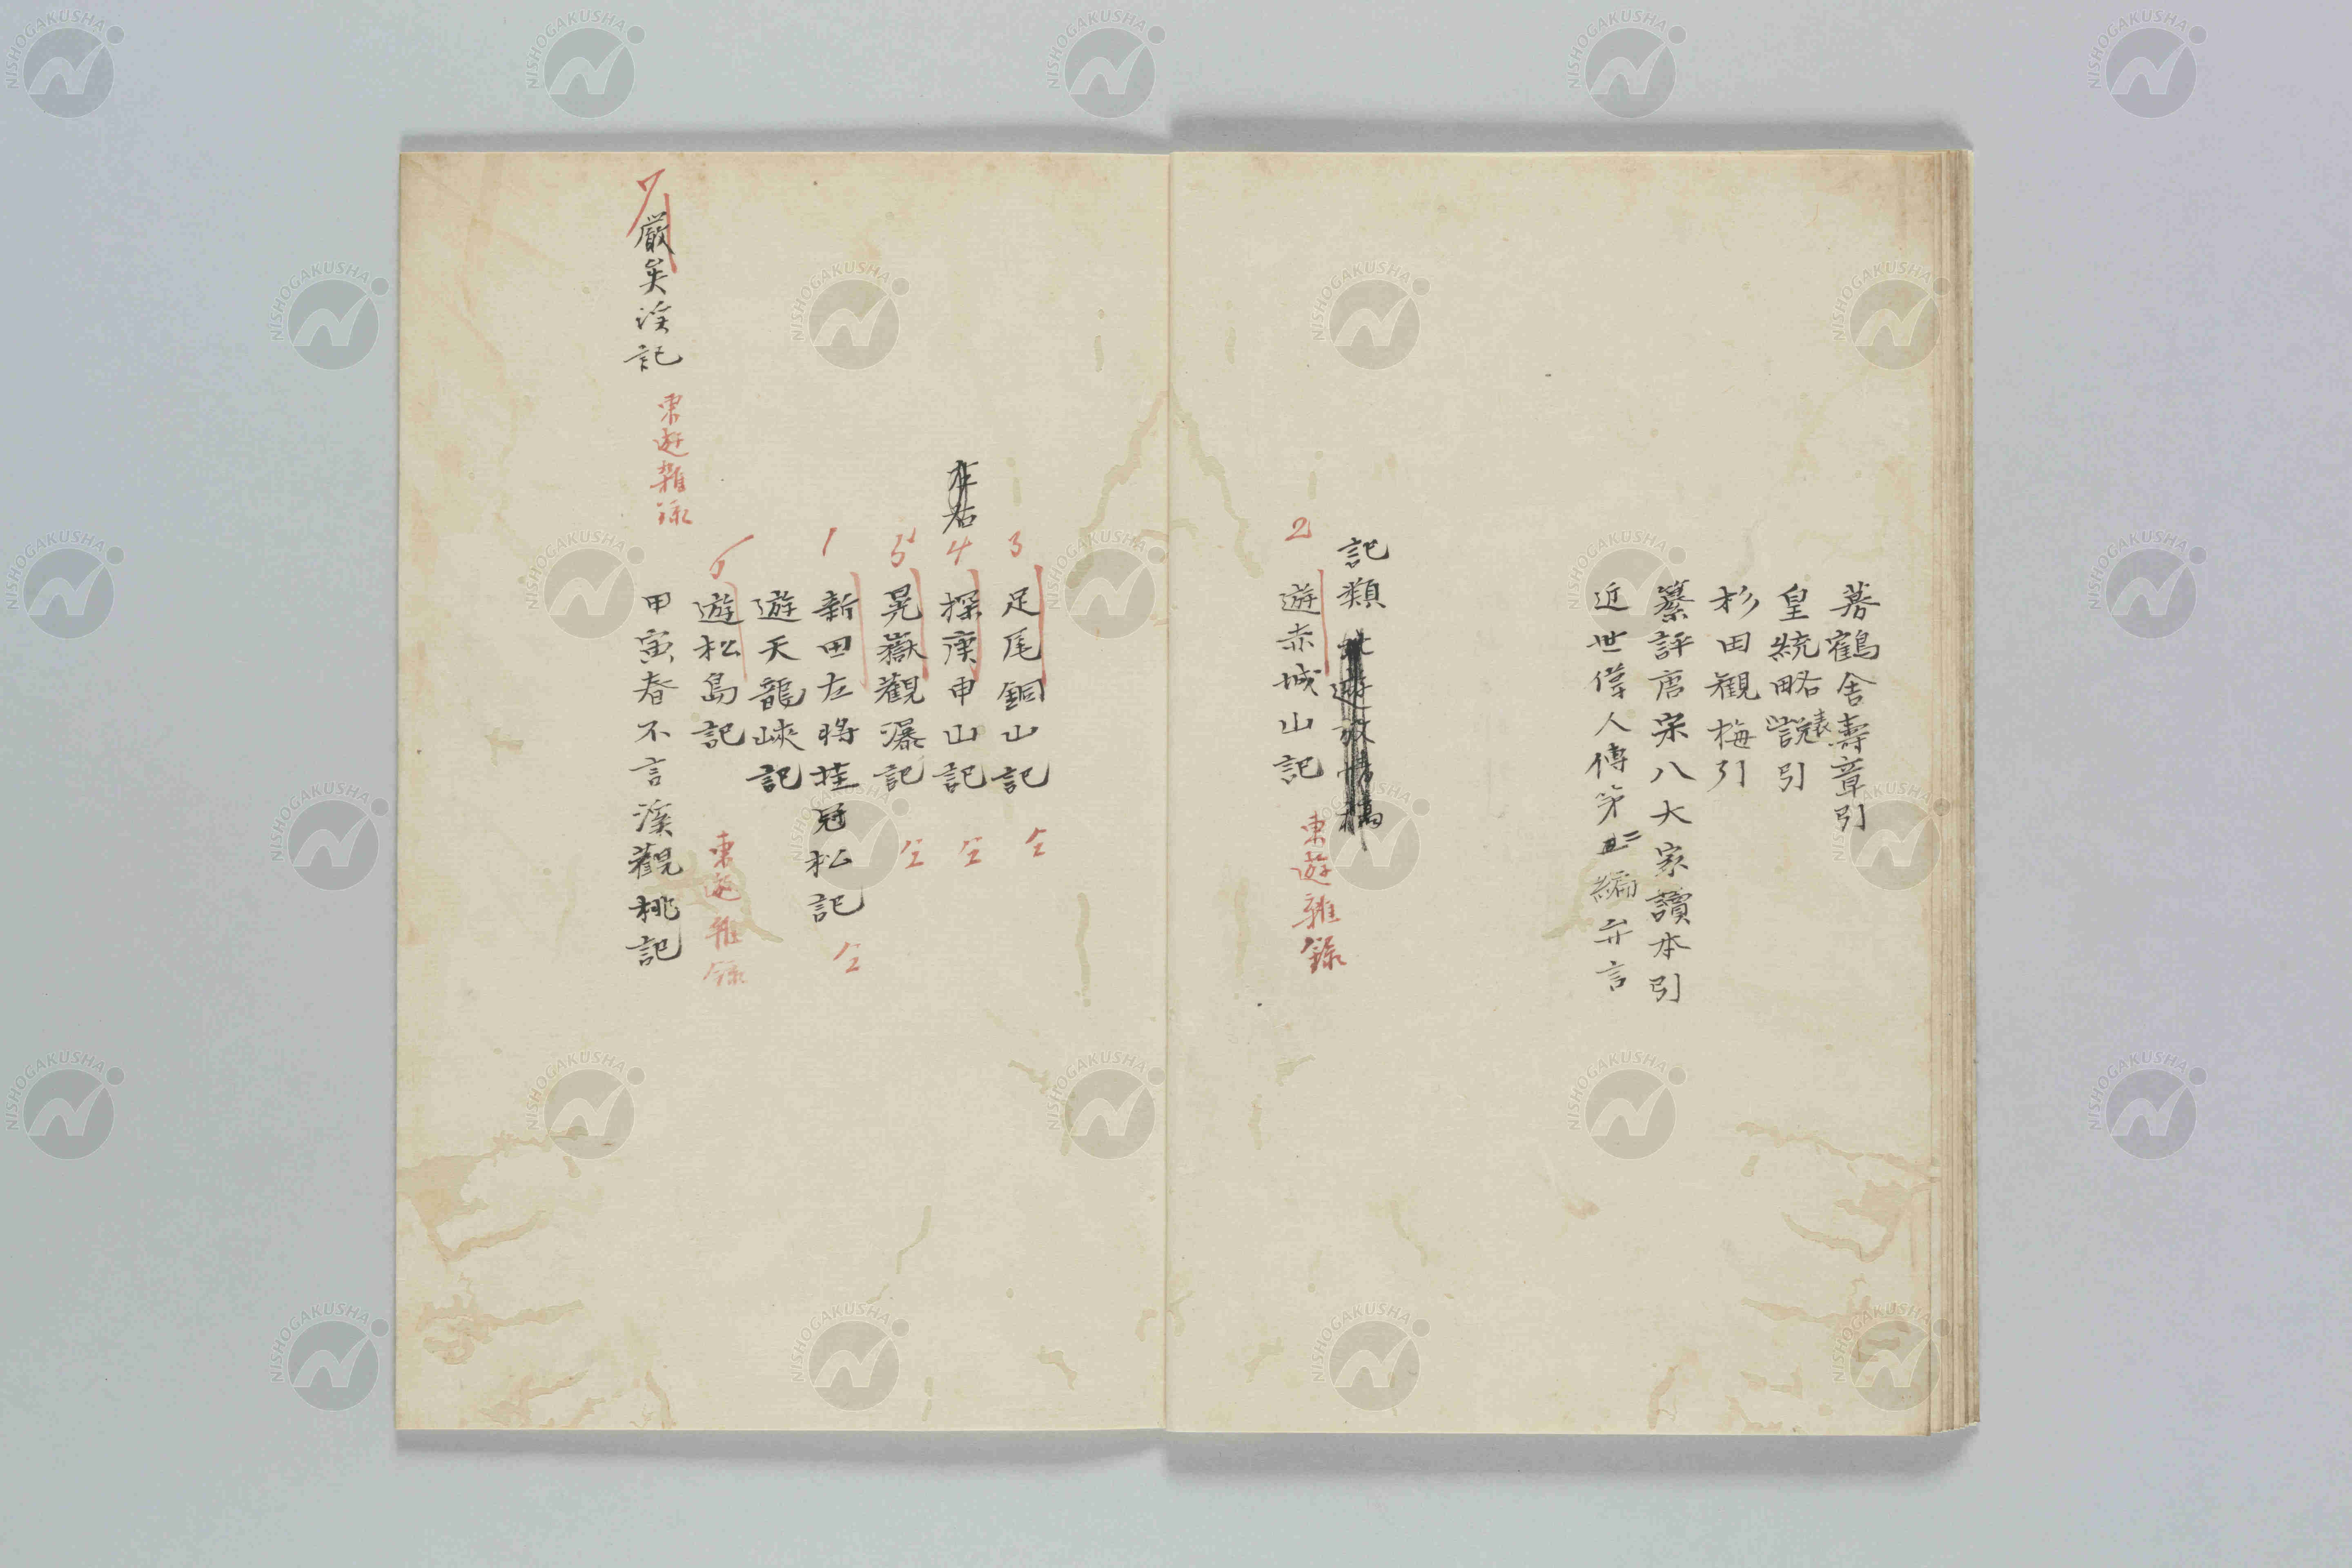 蓉鶴舎壽章引
皇統略表説引
杉田観梅引
纂評唐宋八大家讀本引
近世偉人傳第三編弁言
記類
2 遊赤城山記 東遊雜錄
3 足尾銅山記 仝
4 探庚申山記 仝
5 晃嶽觀瀑記 仝
1 新田左将挂冠松記 仝
遊天龍峽記
6 遊松島記 東遊雜錄
甲寅春不言溪觀桃記
7 嚴美溪記 東遊雜錄